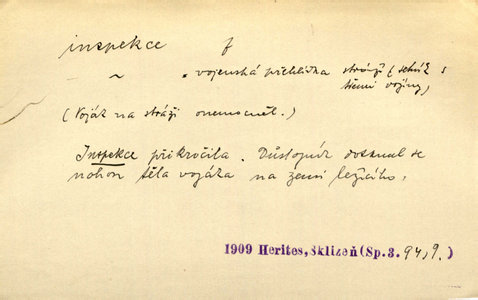 inspekce f
~ . vojenská přehlídka stráží (
třemi vojíny)
(Voják na stráži onemocněl.)
Inspekce přikročila. Důstojník dotknul se
nohou těla vojáka na zemi ležícího.
1909 Herites, Sklizeň (Sp.3. 94,9.)